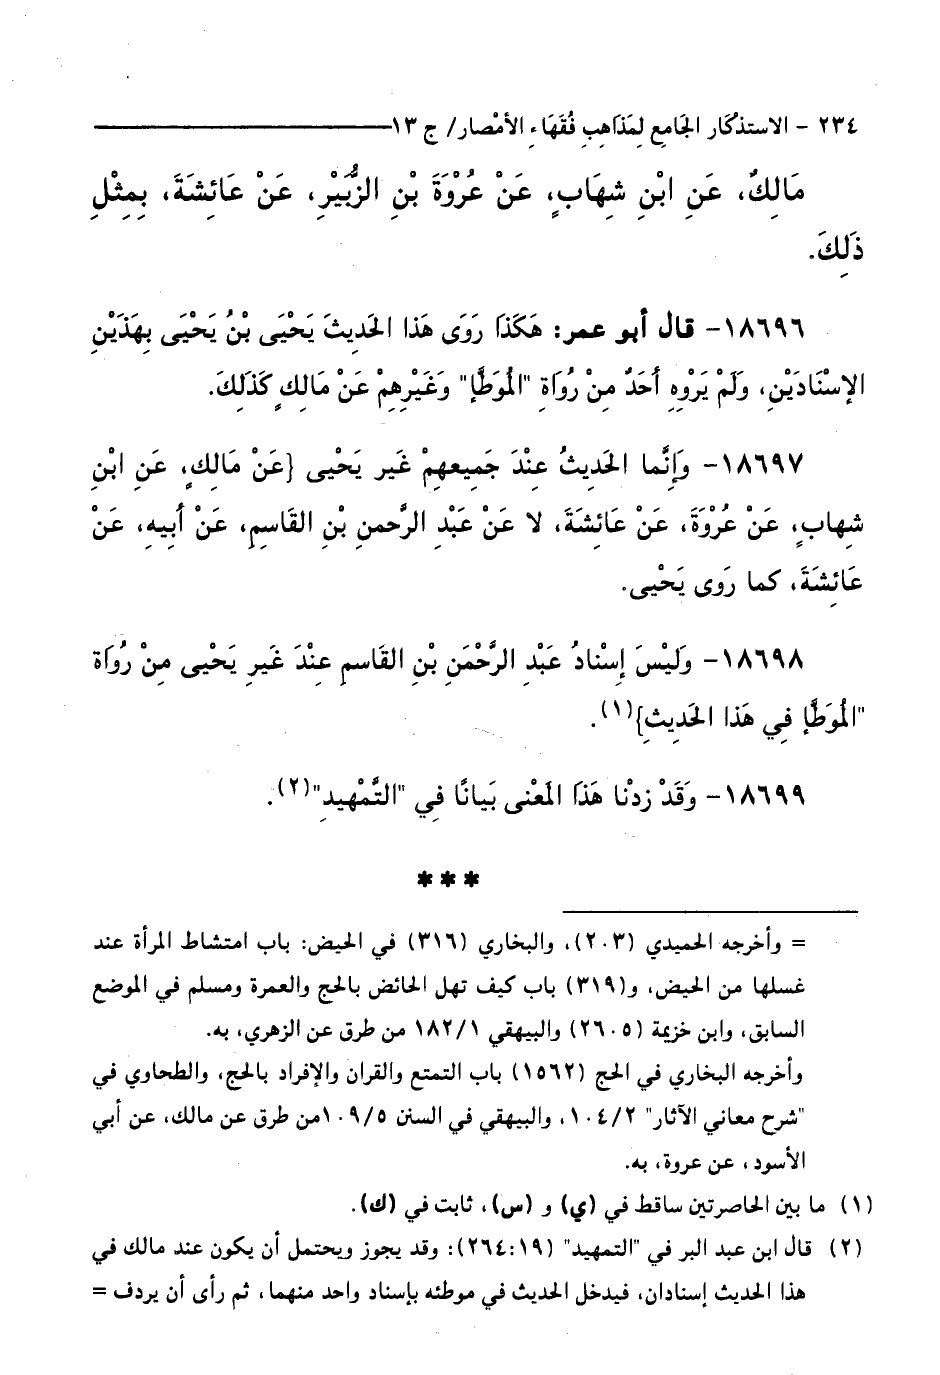 ٢٣٤ - الاستذكار الجامع لِمَذاهِبِ فُقَهَاءِ الأمْصار/ ج ١٣
مَالِكٌ، عَنِ ابْنِ شِهَابٍ، عَنْ عُرْوَةَ بْنِ الزُّبَيْرِ، عَنْ عَائِشَةَ، بِمِثْلِ
ذَلِكَ.
١٨٦٩٦- قال أبو عمر: هَكَذا رَوَى هَذا الحَدِيثَ يَحْيَى بْنُ يَحْيَى بِهَذَيْنِ
الإسْنَادَيْنِ، وَلَمْ يَرْوِهِ أحَدٌ مِنْ رُوَاةِ "المُوَطَّإِ" وَغَيْرِهِمْ عَنْ مَالِكٍ كَذَلِكَ.
١٨٦٩٧- وَإِنَّما الحَدِيثُ عِنْدَ جَمِيعِهِمْ غَيرِ يَحْيى {عَنْ مَالِكٍ، عَنِ ابْنِ
شِهابٍ، عَنْ عُرْوَةَ، عَنْ عَائِشَةَ، لا عَنْ عَبْدِ الرَّحمنِ بْنِ القَاسِمِ، عَنْ أَبِيهِ، عَنْ
عَائِشَةَ، كما رَوَى يَحْيى.
١٨٦٩٨- وَلَيْسَ إِسْنادُ عَبْدِ الرَّحْمَنِ بْنِ القَاسِمِ عِنْدَ غَيرِ يَحْيى مِنْ رُوَاة
"المُوَطَّإِ فِي هَذا الحَدِيثِ}(١).
١٨٦٩٩- وَقَدْ زِدْنا هَذَا المَعْنى بَيَانًا فِي "التَّمْهِيدِ"(٢).
***
= وأخرجه الحميدي (٢٠٣)، والبخاري (٣١٦) في الحيض: باب امتشاط المرأة عند
غسلها من الحيض، و(٣١٩) باب كيف تهل الحائض بالحج والعمرة ومسلم في الموضع
السابق، وابن خزيمة (٢٦٠٥) والبيهقي ١٨٢/١ من طرق عن الزهري، به.
وأخرجه البخاري في الحج (١٥٦٢) باب التمتع والقران والإفراد بالحج، والطحاوي في
"شرح معاني الآثار" ١٠٤/٢، والبيهقي في السنن ١٠٩/٥من طرق عن مالك، عن أبي
الأسود، عن عروة، به.
(١) ما بين الحاصرتين ساقط في (ي) و (س)، ثابت في (ك).
(٢) قال ابن عبد البر في "التمهيد" (٢٦٤:١٩): وقد يجوز ويحتمل أن يكون عند مالك في
هذا الحديث إسنادان، فيدخل الحديث في موطئه بإسناد واحد منهما، ثم رأى أن يردف =